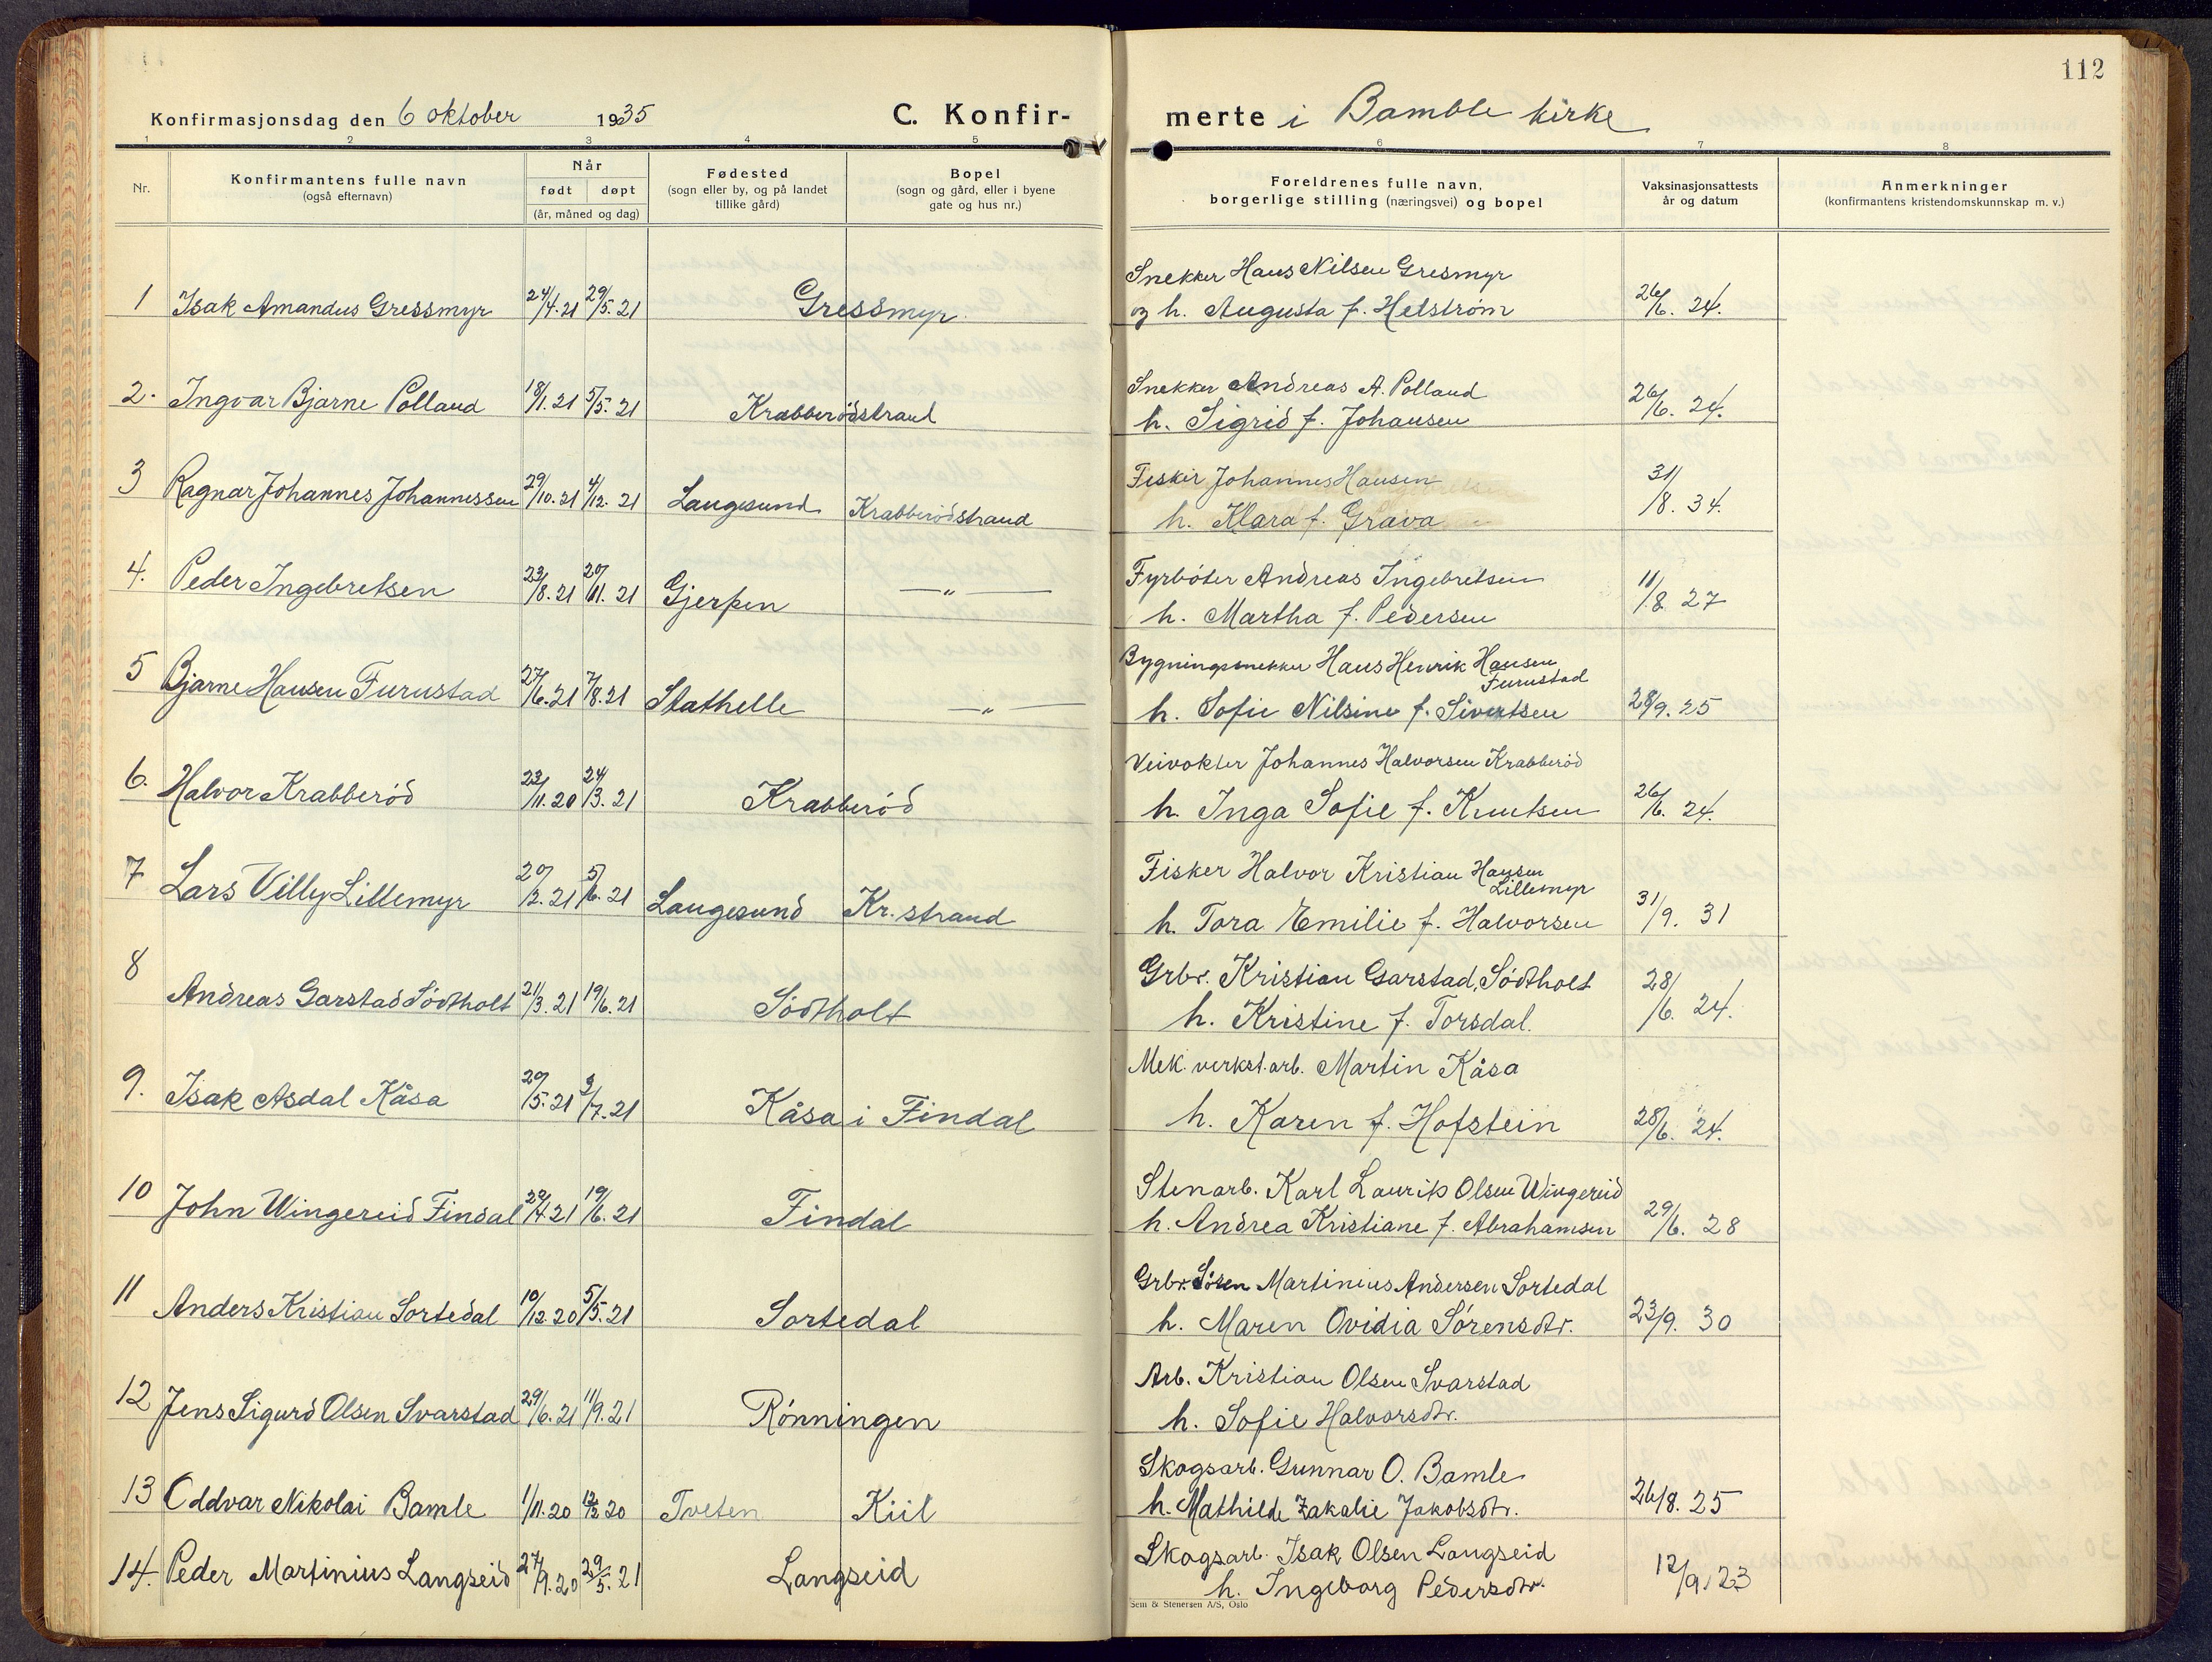 112
Konfirmasjonsdag den 6 oktober 1935 C. Konfir-
merte i Bamble kirke
1 2 3 4 5
6 7 8
Nr. Konfirmantens fulle navn (også efternavn) Når født døpt (år, måned og dag) Fødested (sogn eller by, og på landet tillike gård) Bopel (sogn og gård, eller i byene gate og hus nr.)
Foreldrenes fulle navn, borgerlige stilling (næringsvei) og bopel Vaksinasjonsattests år og datum Anmerkninger (konfirmantens kristendomskunnskap m. v.)
1 Isak Amandus Gressmyr 24/4.21 29/5.21 Gressmyr
Snekker Hans Nilsen Gresmyr
og h. Augusta f. Helstrøm 26/6. 24.
2. Ingvar Bjarne Polland 18/1.21 5/5.21 Krabberödstrand
Snekker Andreas A. Polland
h. Sigrid f. Johansen 26/6. 24.
3 Ragnar Johannes Johannessen 29/10.21 4/12.21 Langesund Krabberödstrand
Fisker Johannes Hansen
h. Klara f. Grava 31/8. 34.
4. Peder Ingebretsen 23/8.21 20/11.21 Gjerpen —„—
Fyrbóter Andreas Ingebretsen
h. Martha f. Pedersen 11/8. 27
5 Bjarne Hansen Furustad 27/6.21 7/8.21 Stathelle —„—
Bygningssnekker Hans Henrik Hansen
Furustad
h. Sofie Nilsine f. Sivertsen 28/9. 25
6. Halvor Krabberód 23/11.20 24/3.21 Krabberód
Veivokter Johannes Halvorsen Krabberód
h. Inga Sofie f. Knutsen 26/6. 24.
7 Lars Villy Lillemyr 20/2.21 5/6.21 Langesund Kr.strand
Fisker Halvor Kristian Hansen
Lillemyr
h. Tora Emilie f. Halvorsen 31/9. 31
8 Andreas Garstad Södtholt 21/3.21 19/6.21 Södtholt
Grbr. Kristian Garstad, Södtholt
h. Kristine f. Torsdal. 28/6. 24.
9. Isak Asdal Kåsa 20/5.21 3/7.21 Kåsa i Findal
Mek. verkst.arb. Martin Kåsa
h. Karen f. Hofstein 28/6. 24.
10 John Wingereid Findal 29/4.21 19/6.21 Findal
Stenarb. Karl Laurits Olsen Wingereid
h. Andrea Kristiane f. Abrahamsen 29/6. 28
11 Anders Kristian Sortedal 10/12.20 5/5.21 Sortedal
Grbr. Sören Martinius Andersen Sortedal
h. Maren Ovidia Sórensdtr. 23/9. 30
12 Jens Sigurd Olsen Svarstad 29/6.21 11/9.21 Rónningen
Arb. Kristian Olsen Svarstad
h. Sofie Halvorsdtr.
13 Oddvar Nikolai Bamle 1/11.20 12/12 20 Tveten Kiil
Skogsarb. Gunnar O. Bamle
h. Mathilde Zakalie Jakobsdtr. 26/8. 25
14. Peder Martinius Langseid 27/9.20 29/5.21 Langseid
Skogsarb. Isak Olsen Langseid
h. Ingeborg Pedersdtr. 12/9.23
Sem & Stenersen A/S, Oslo